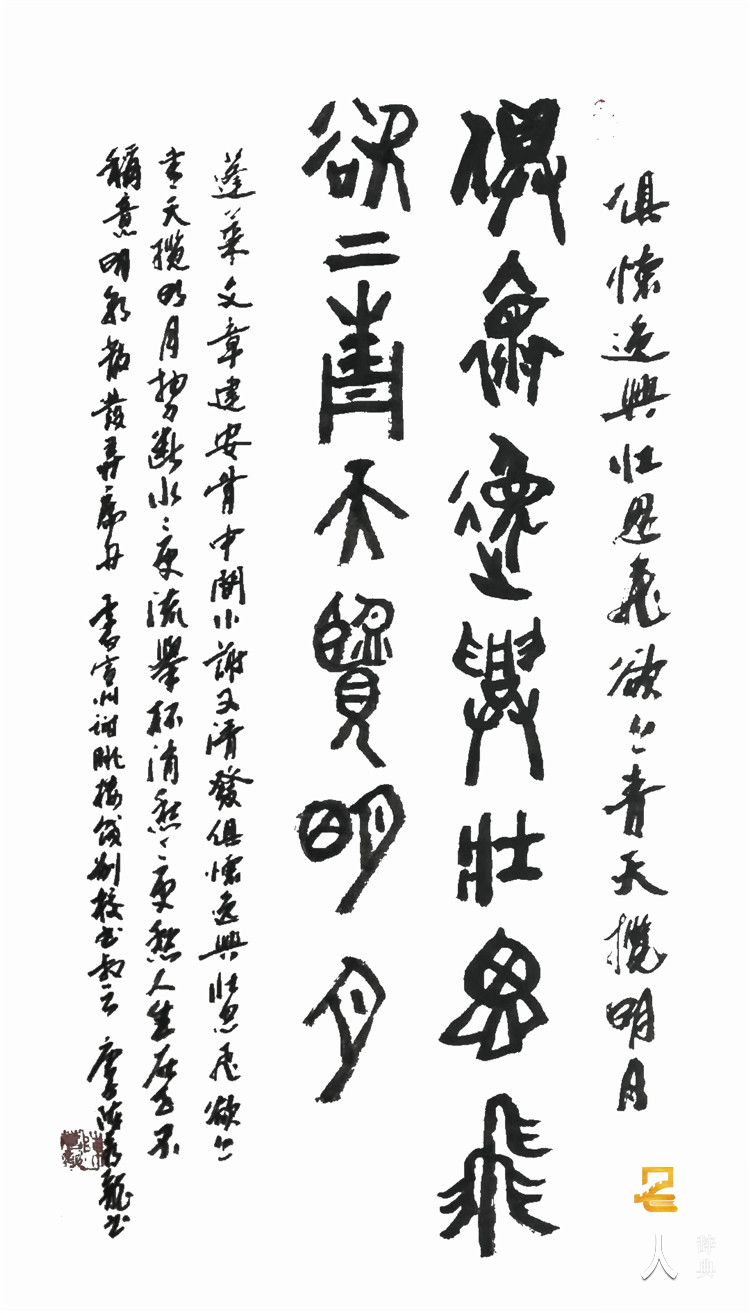 俱懷逸興壮思飛欲上青天攬明月
俱懷逸興壯思飛
欲二青天覽明月
蓬萊文章建安骨中間小謝又清發俱懷逸興壯思飛欲上
青天攬明月抽刀斷水〻更流舉杯消愁〻更愁人生在世不
稱意明朝散發弄扁舟 宣州謝朓樓餞別校书叔云
人
辞典